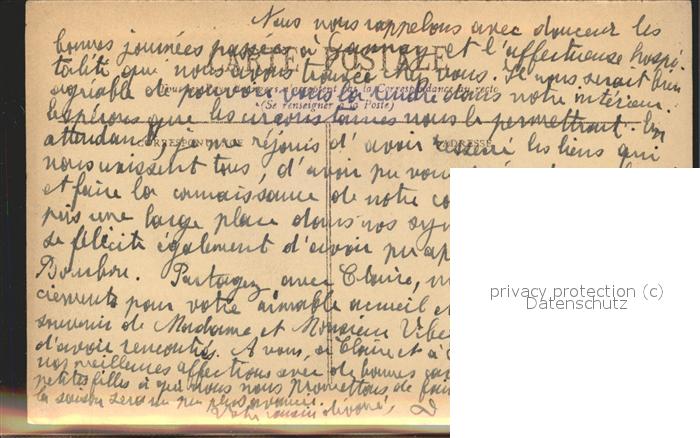 Nous nous rappelons avec douceur les
bonnes journées passées à Gannay et l'affectueuse hospi-
CARTE POSTALE
talité que nous avons trouvée chez vous. Il nous serait bien
agréable de pouvoir vous la rendre dans notre intérieur.
(Se renseigner à la Poste)
Espérons que les circonstances nous le permettront. En
CORRESPONDANCE
ADRESSE
attendant, je me réjouis d'avoir resserré les liens qui
nous unissent tous, d'avoir pu vous
et faire la connaissance de notre
pris une large place dans nos
se félicite également d'avoir pu
Bourbon. Partagez avec Claire,
ciements pour votre aimable accueil et
souvenir de Madame et Monsieur
d'avoir rencontrés. A vous, à Claire et à
nos meilleures affections avec de bonnes
petites filles à qui nous nous promettons de
la saison sera un peu plus avancée.
Votre cousin dévoué,
privacy protection (c)
Datenschutz